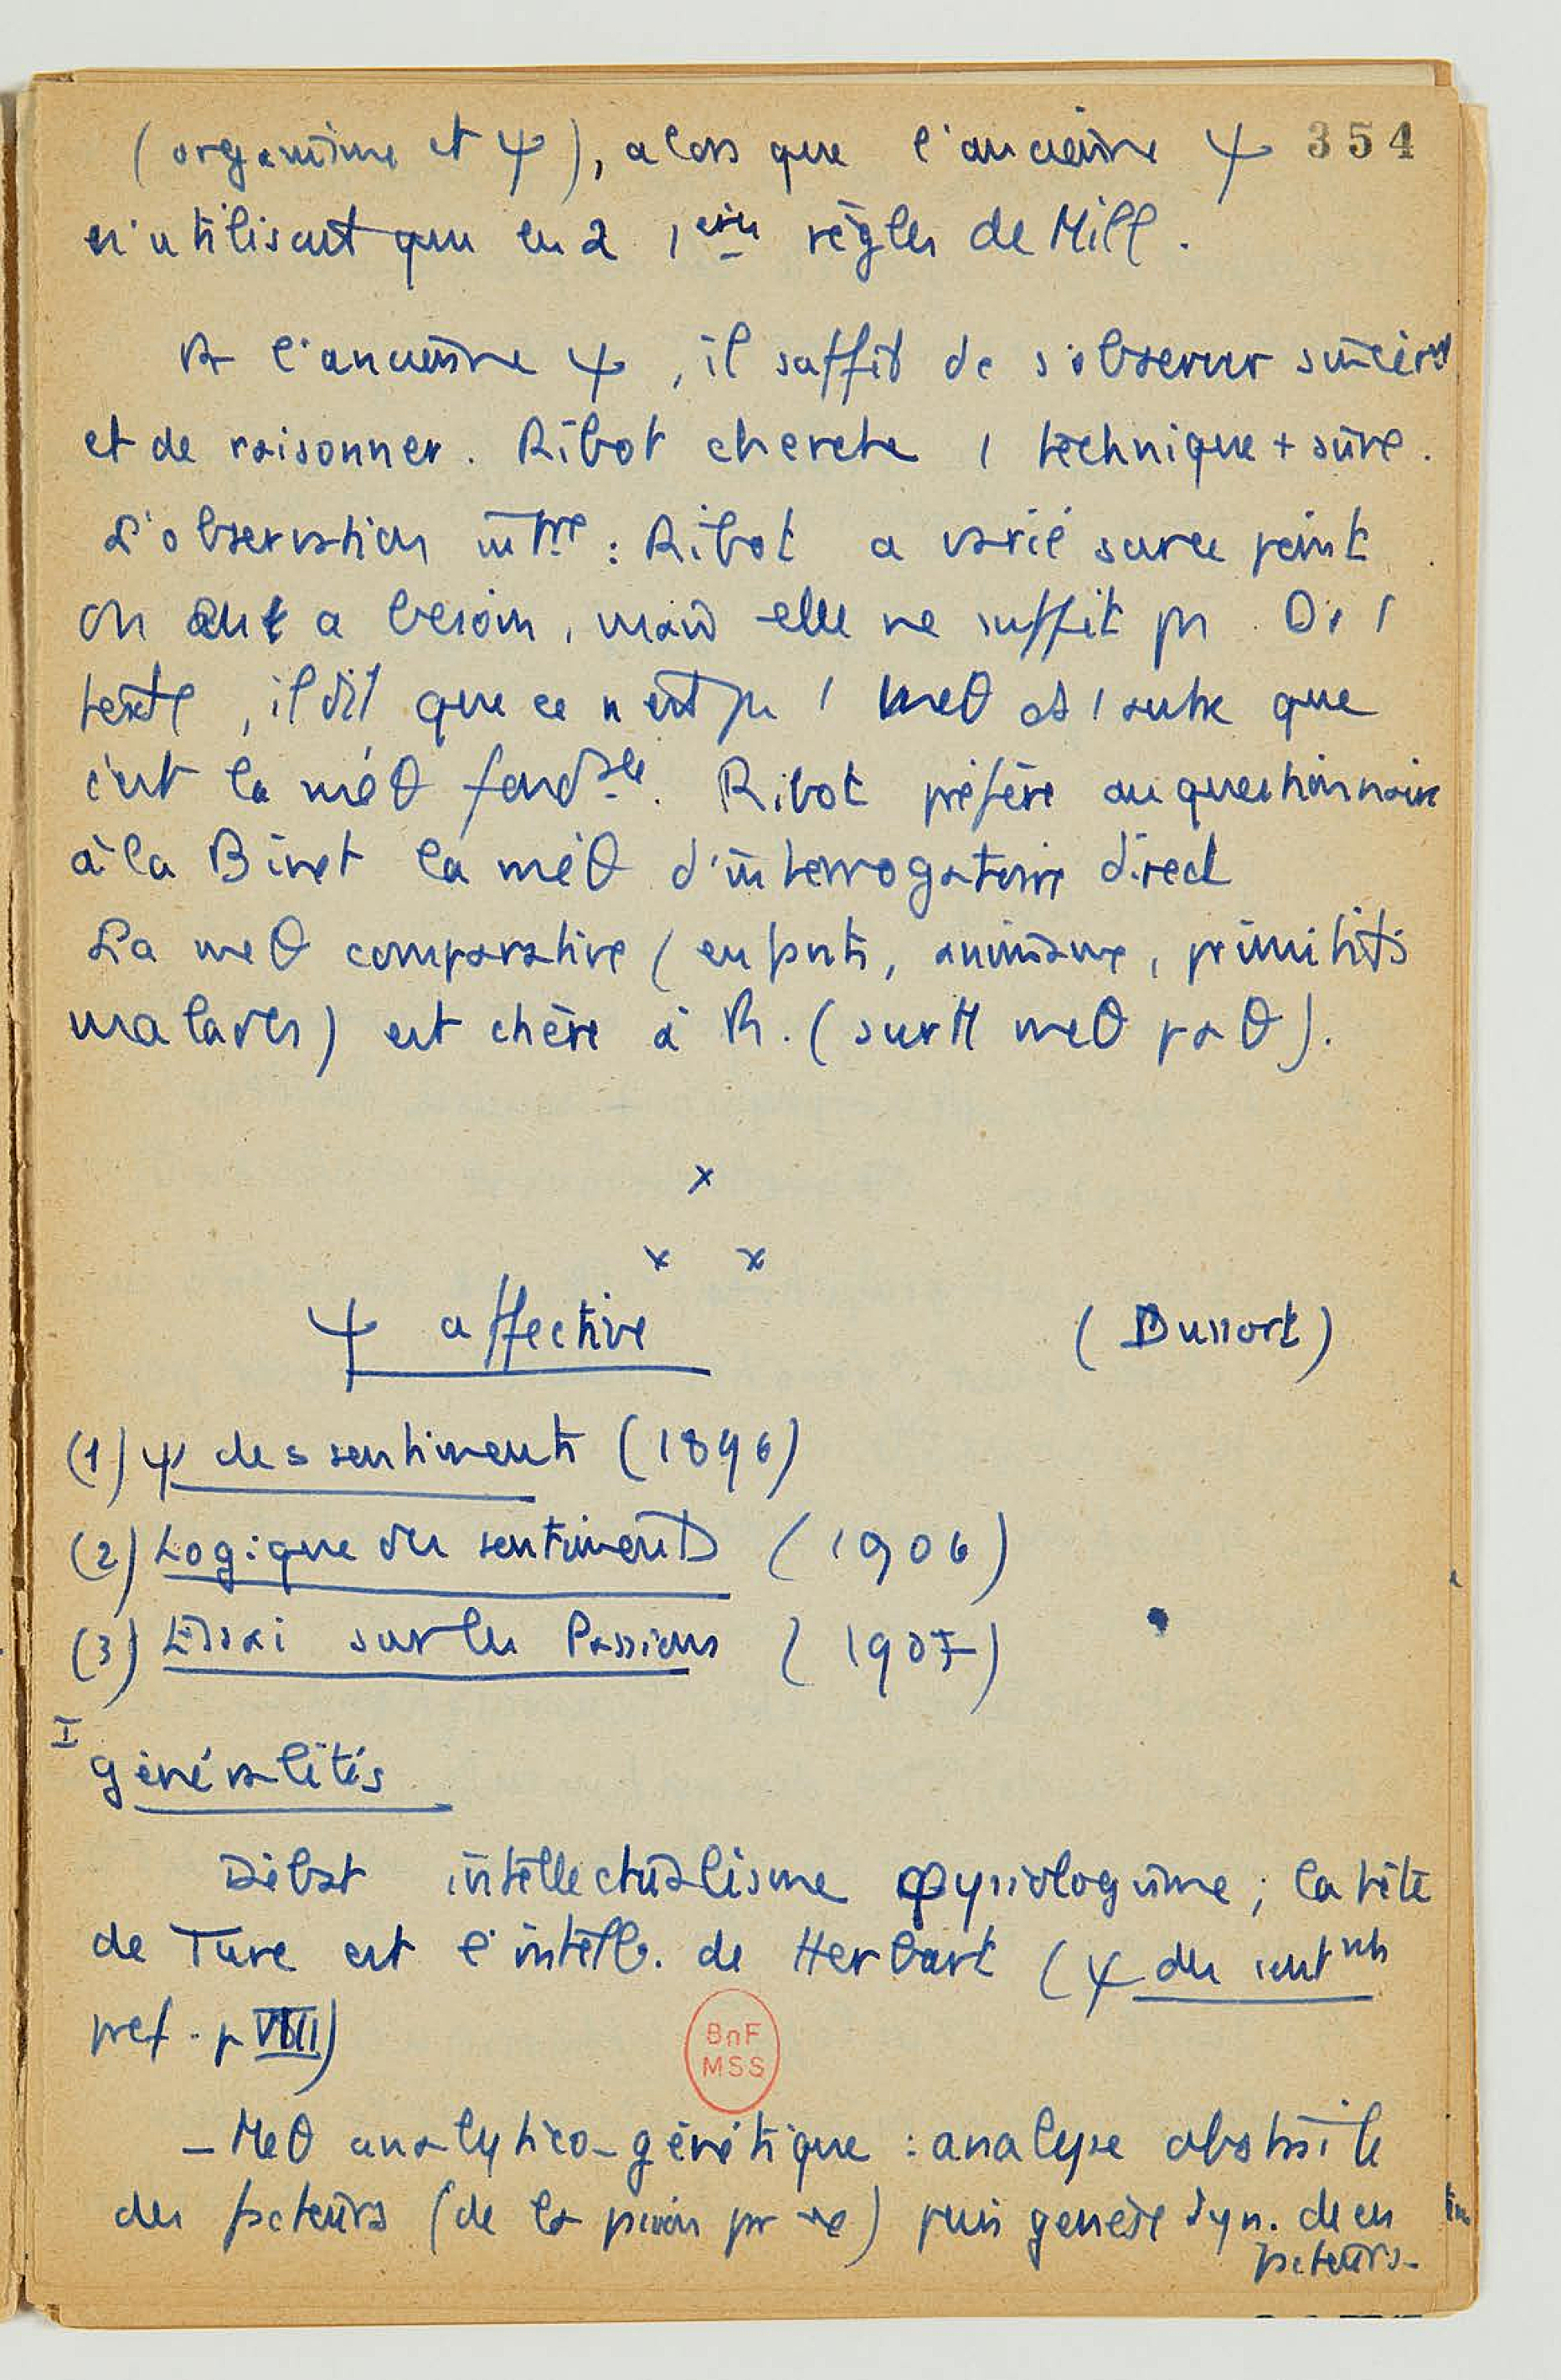 (organisme et ψ), alors que l'ancienne ψ 354
n'utilisait que les 2 1ères règles de Mill.
l'ancienne ψ, il suffit de s'observer sincèrt
et de raisonner. Ribot cherche 1 technique + sûre.
L'observation : Ribot a varié sur ce point
On en a besoin, mais elle ne suffit ps. Ds 1
texte, il dit que ce n'est ps 1 meθ ds 1 autre que
c'est la méθ fondale. Ribot préfère au questionnaire
à la Binet la méθ d'interrogatoire direct
La meθ comparative (enfants, animaux, primitifs
malades) est chère à R. (surtt meθ paθ).
x
x x
ψ affective (Dussort)
(1) ψ des sentiments (1896)
(2) Logique des sentiments (1906)
(3) Essai sur les Passions (1907)
I
généralités
Débat intellectualisme φysiologisme; la tête
de Turc est l'intell. de Herbart (ψ des sentnts
pref. p VIII)
– Meθ analytico-génétique : analyse abstraite
des facteurs (de la passion pr ex) puis genèse syn. de ces
facteurs.
BnF
MSS